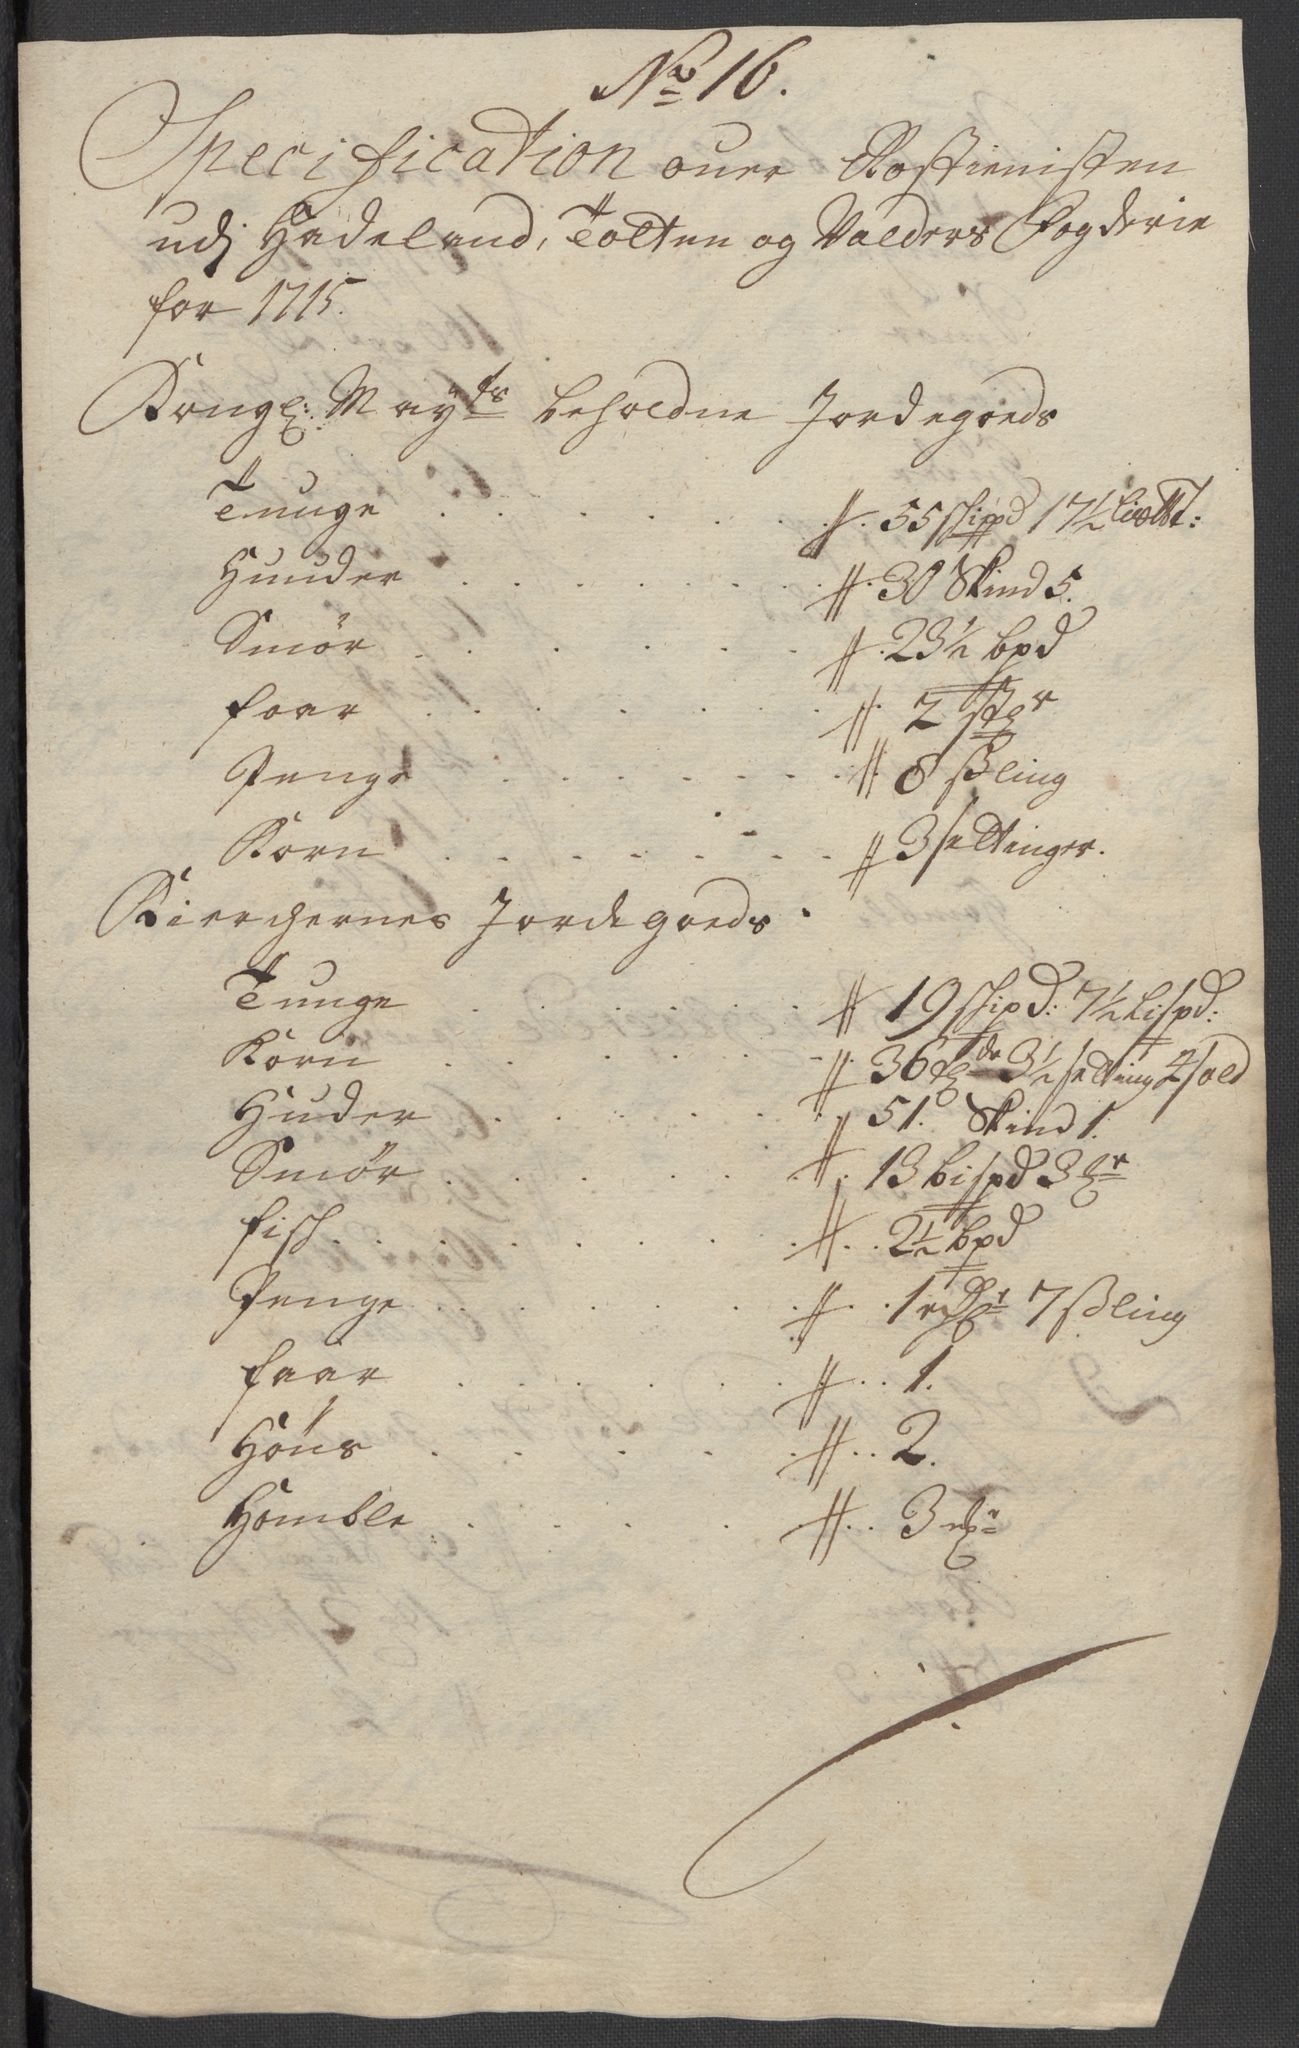 No 16.
Specification ouer Rostienisten
udj Hadeland, Totten og Valders Fogderie
for 1715.
Kongl: Mayts beholdne Jordegoeds
Tunge . . . . . . . # 55 schippd 17½ 
Huuder . . . . . . . # 30 Skind 5.
Smör . . . . . . . # 23½ bpd
faar . . . . . . . # 2
Penge . . . . . . . # 8 ßling
Korn . . . . . . . # 3 settinger.
Kierchernes Jordegoeds.
Tunge . . . . . . # 19 schipd: 7½ Lispd:
Korn . . . . . . # 36 3½ setting 4 sold
Huder . . . . . . # 51. Skind 1.
Smör . . . . . . # 13 bispd 3
fisch . . . . . . . # 2½ bpd
Penge . . . . . . # 1 7 ßling
faar . . . . . . # 1.
Höns . . . . . # 2.
Homble . . . . . # 3